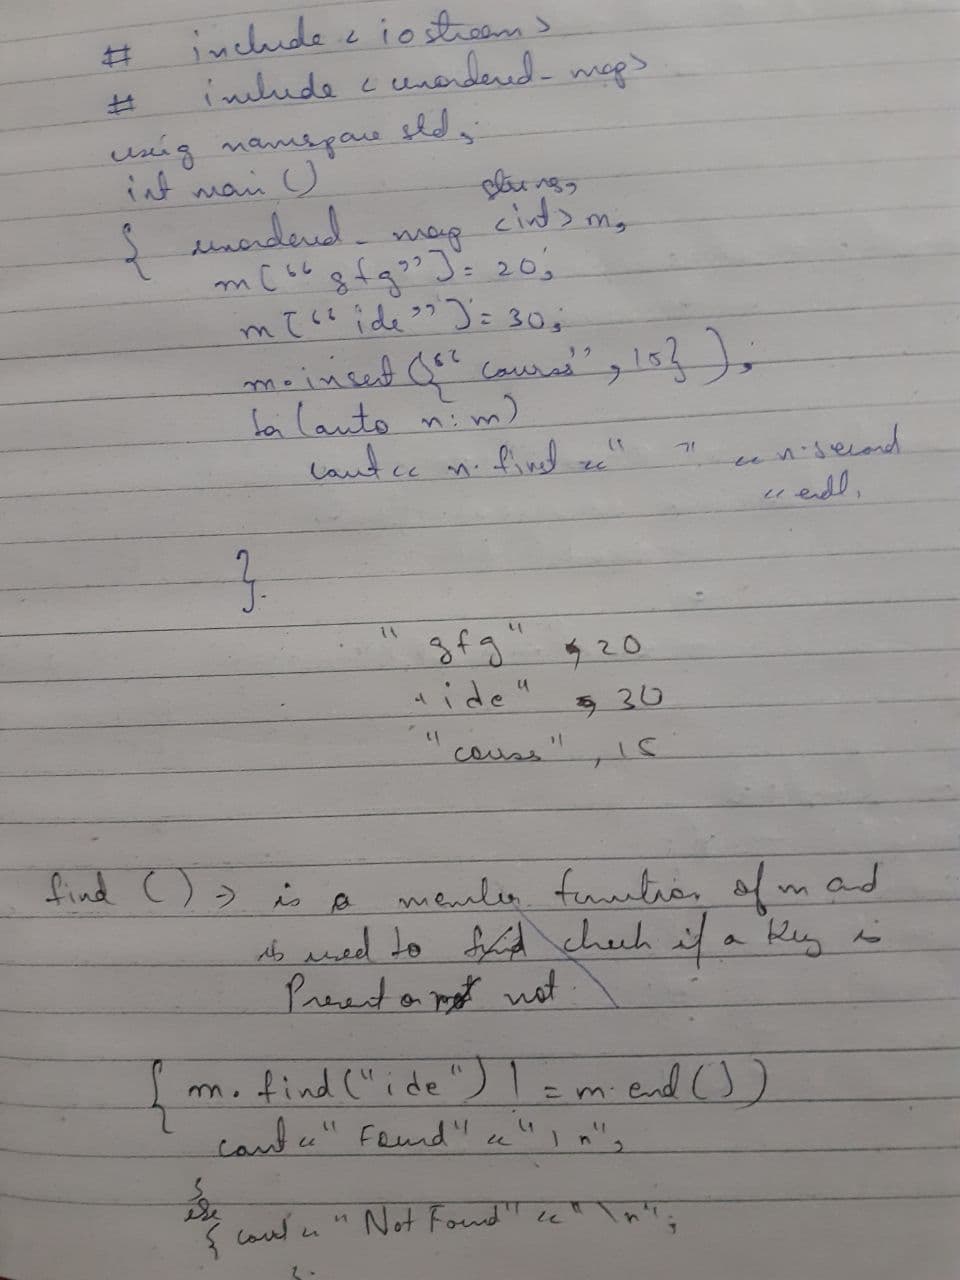 # include < iostream >
# include < unordered_map>
using namespace std;
int main ()
string,
{ unordered_map <int> m;
m["gfg"] = 20;
m["ide"] = 30;
m.insert ({"course", 15});
for (auto n: m)
cout << n.first << " " << n.second
<< endl;
}.
"gfg" , 20
"ide" , 30
"course", 15
find () → is a member function of m and
is used to check if a key is
Present or not
{ m. find("ide") != m.end())
cout << "Found" << "\n";
}
else
{ cout << "Not Found" << "\n";
}.